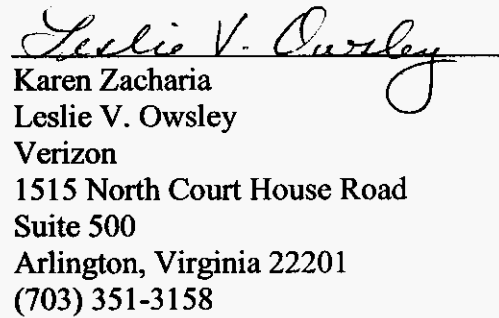 Leslie V. Owsley
Karen Zacharia
Leslie V. Owsley
Verizon
1515 North Court House Road
Suite 500
Arlington, Virginia 22201
(703) 351-3158